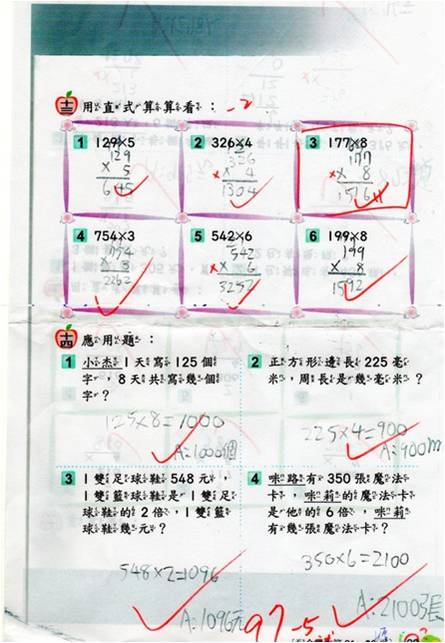 十三 用直式算算看： -2
1 129×5
129
× 5
645
2 326×4
326
× 4
1304
3 177×8
177
× 8
1516
4 754×3
754
× 3
2262
5 542×6
542
× 6
3252
6 199×8
199
× 8
1592
十四 應用題：
1 小杰1天寫125個
字，8天共寫幾個
字？
125×8=1000
A:1000個
2 正方形邊長225毫
米，周長是幾毫米？
225×4=900
A:900m
3 1雙足球鞋548元，
1雙籃球鞋是1雙足
球鞋的2倍，1雙籃
球鞋幾元？
548×2=1096
A:1096元
4 咪路有350張魔法
卡，咪莉的魔法卡
是他的6倍，咪莉
有幾張魔法卡？
350×6=2100
A:2100張
97 -5